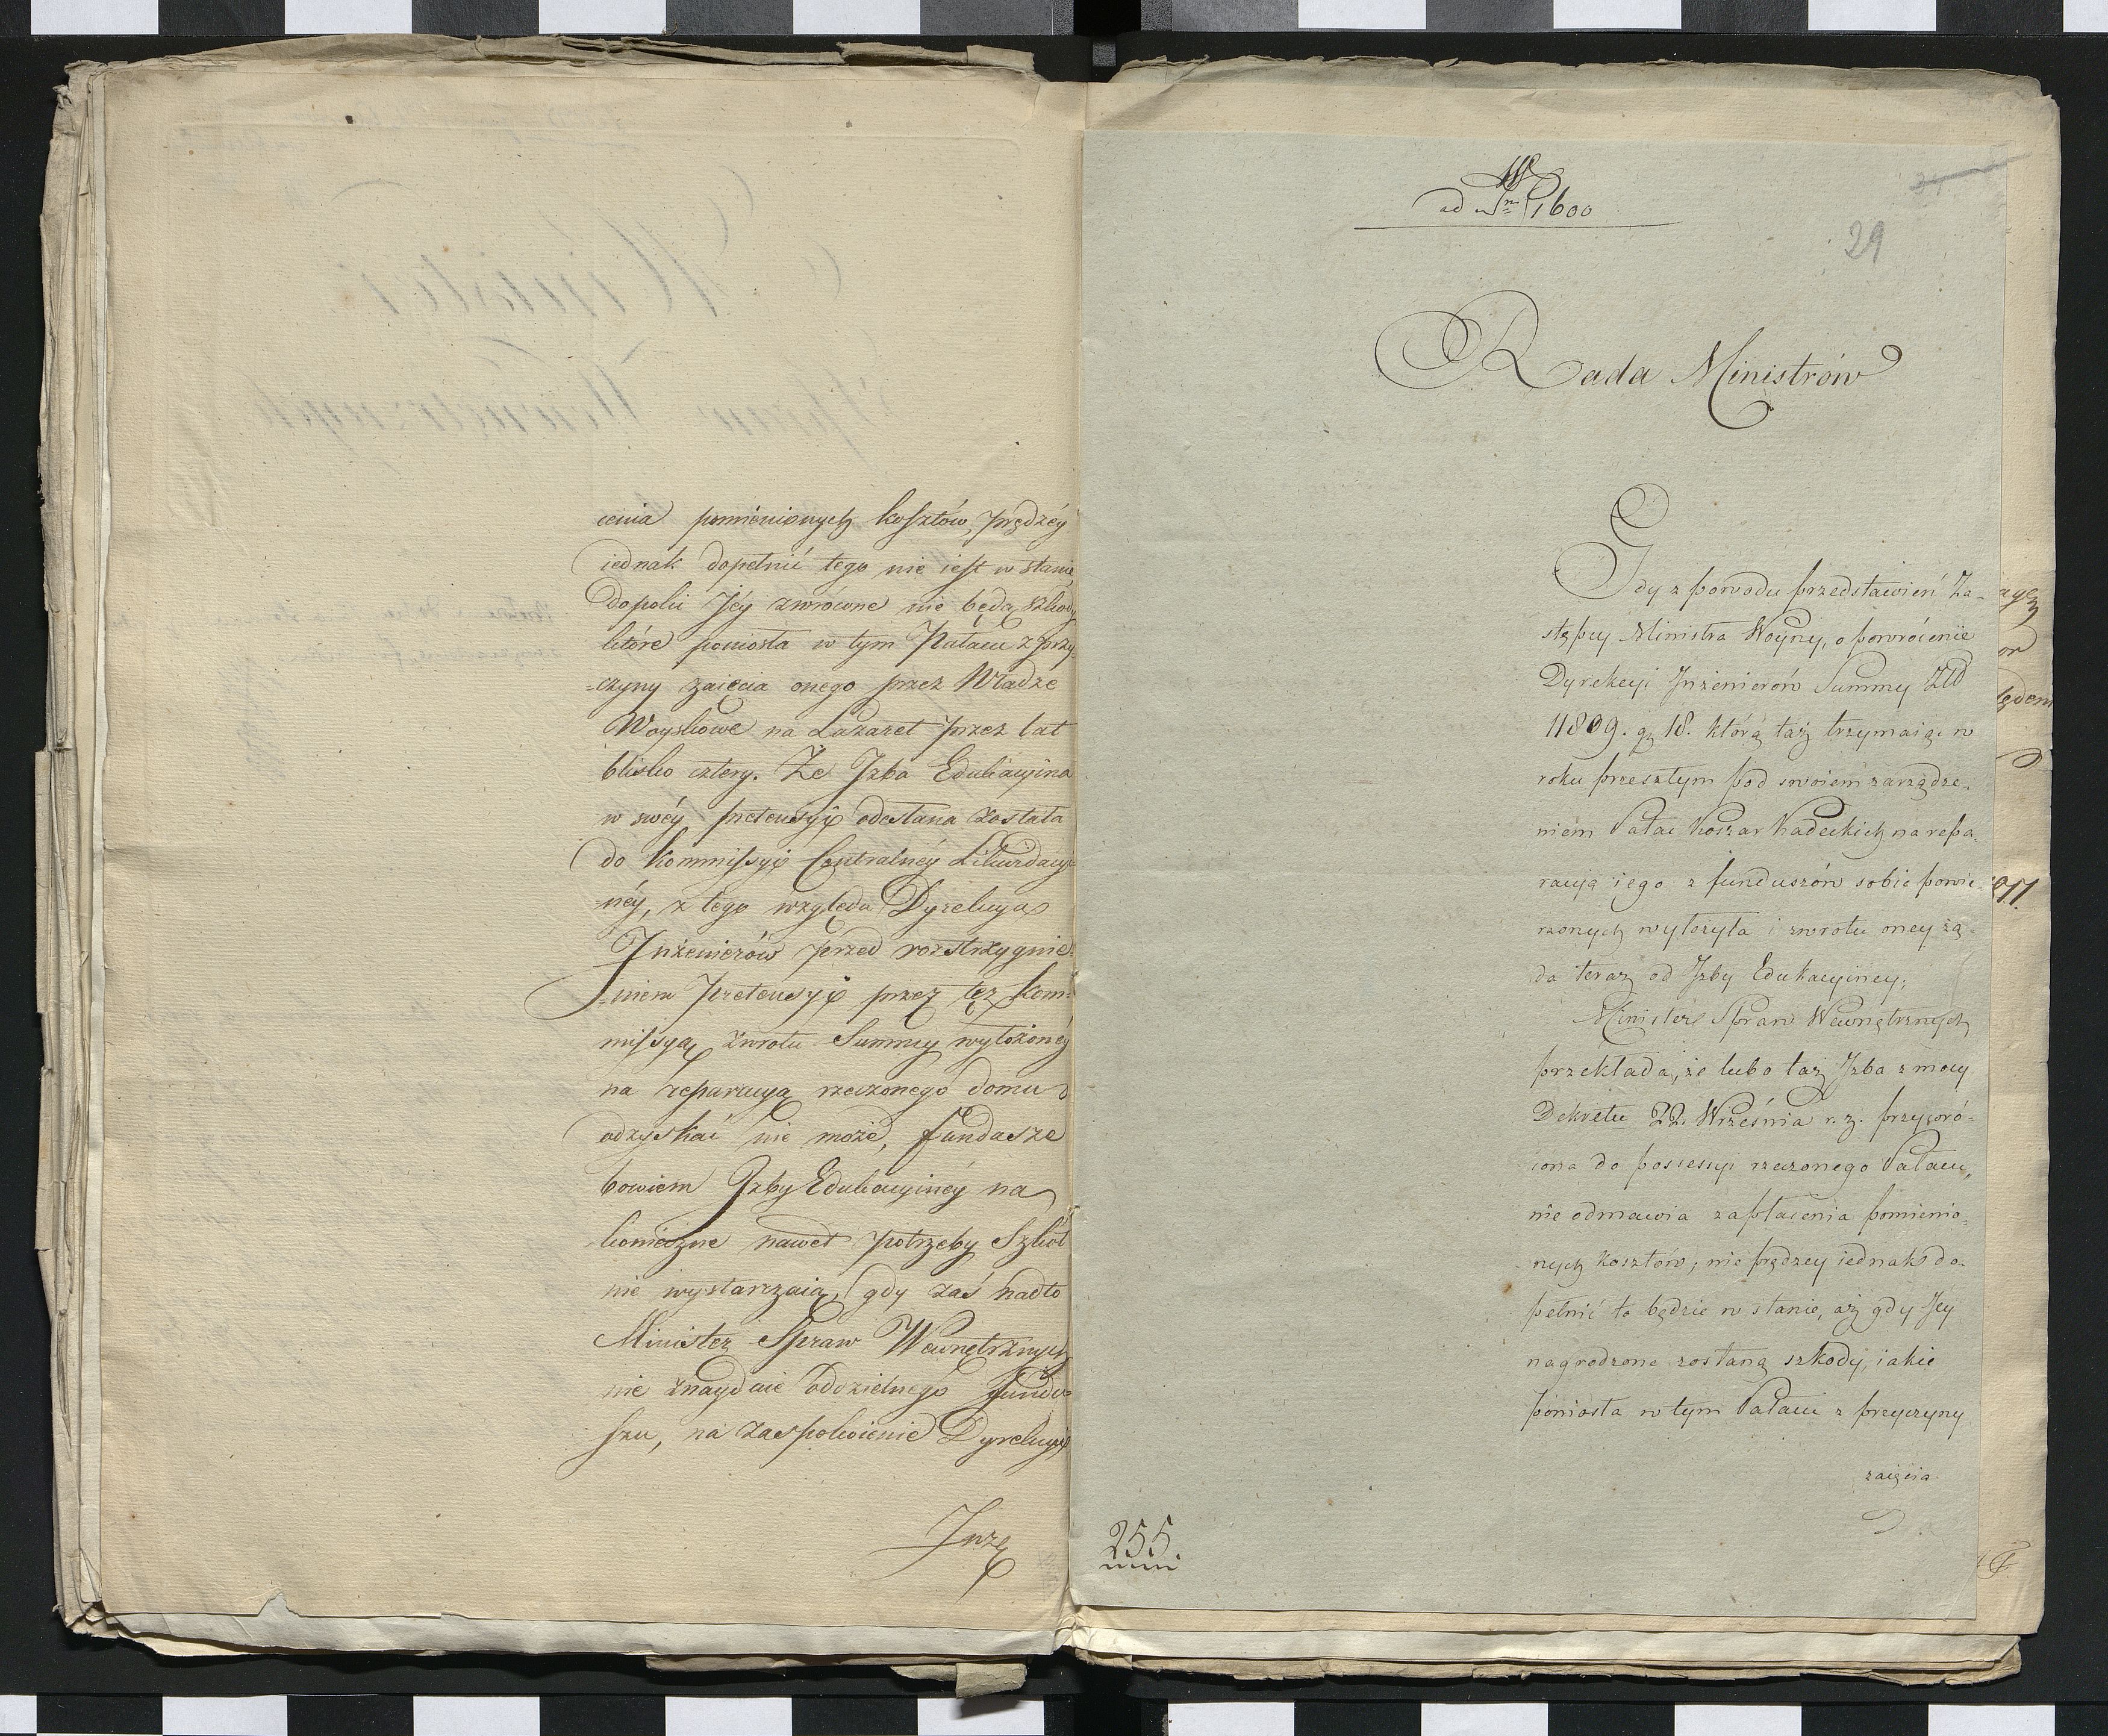 cenia pomienionych kosztów, prędzéy
iednak dopełnić tego nie iest w stanie,
dopoki Jéy zwrócone nie będą szkody
które poniosła w tym Pałacu z przy-
=czyny zaięcia onego przez Władze
Woyskowe na Lazaret przez lat
blisko cztery. Że Jzba Edukacyina
w swéy pretensyi odesłana została
do Kommissyi Centralnéy Likwidacyi-
=néy, z tego względu Dyrekcya
Jnżenierów przed rozstrzygnie-
=niem pretensyi przez tęż Kom=
missyą zwrotu Summy wyłożonéy
na reparacyą rzeczonego domu
odzyskać nie może, fundusze
bowiem Jzby Edukacyinéy na
konieczne nawet potrzeby Szkół
nie wystarczaią, gdy zaś nadto
Minister Spraw Wewnętrznych
nie znayduie oddzielnego fundu=
szu, na zaspokoienie Dyrekcyi
Jnże
ad Nrm 1600
29
Rada Ministrów
Gdy z powodu przedstawień Za-
stępcy Ministra Woyny, o powrócenie
Dyrekcyi Jnżenierów Summy Złł
11809. gr 18. którą taż trzymaiąc w
roku przeszłym pod swoiem zarządze-
niem Pałac Koszar Kadeckich na repa-
racyą iego z funduszów sobie powie-
rzonych wyłożyła i zwrotu oney żą-
da teraz od Jzby Edukacyiney;
Minister Spraw Wewnętrznych
przekłada, że lubo taż Jzba z mocy
Dekretu 22. Września r. z. przywró-
cona do possessyi rzeczonego Pałacu,
nie odmawia zapłacenia pomienio-
nych kosztów; nie prędzey iednak do-
pełnić to będzie w stanie, aż gdy Jey
nagrodzone zostaną szkody, iakie
poniosła w tym Pałacu z przyczyny
zaięcia
255.